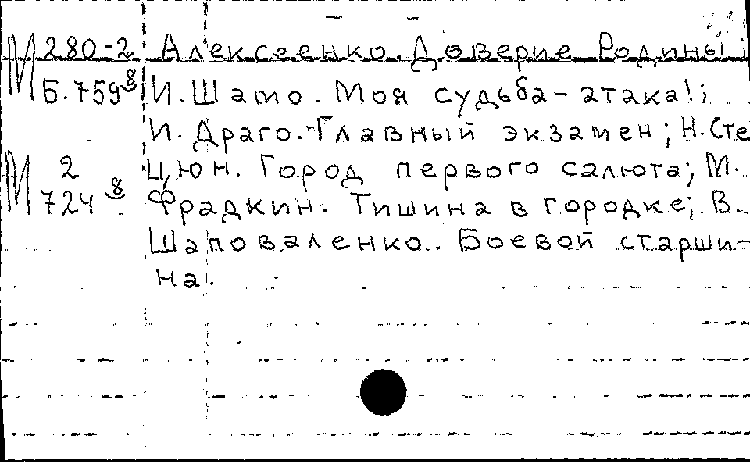 М 280-2 Алексеенко. Доверие Родины
Б.759 8 И. Шамо. Моя судьба - атака!;
И. Драго. Главный экзамен; Н. Сте
М 2 цюн. Город первого салюта; М.
724 8 Фрадкин. Тишина в городке; В.
Шаповаленко. Боевой старши-
на.